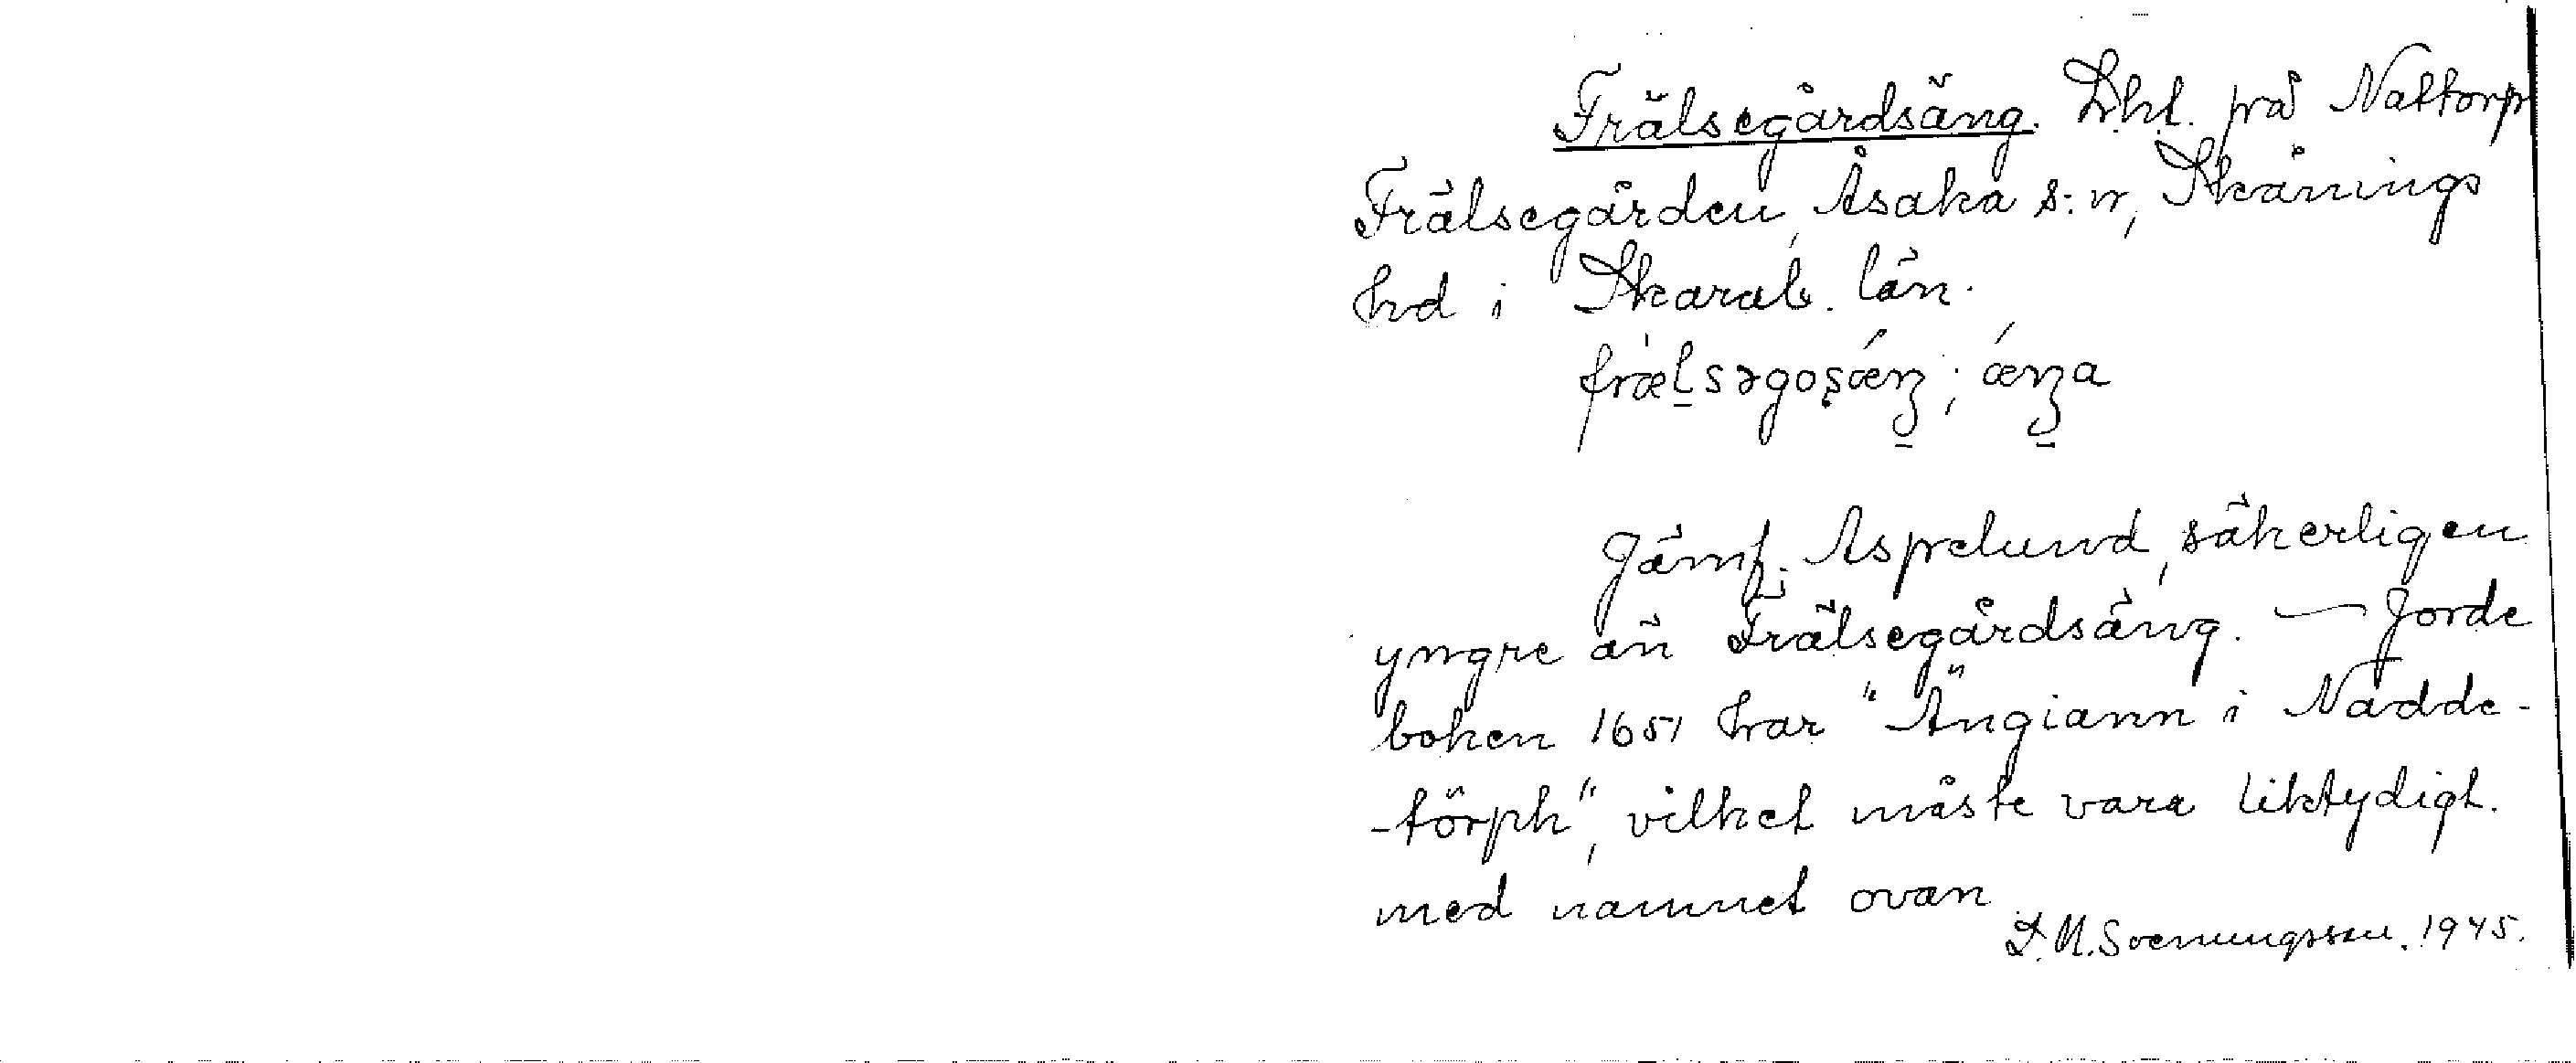 Frälsegårdsäng. Lht. på Nattorp
Frälsegården, Åsaka s:n, Skånings
hd i Skarab. län.
frælsəgoşǽŋ; ǽŋa
Jämf. Aspelund, säkerligen
yngre än Frälsegårdsäng. — Jorde
boken 1651 har "Ängiann i Nadde-
-törph", vilket måste vara liktydigt.
med namnet ovan
D.M. Svenungsson. 1945.